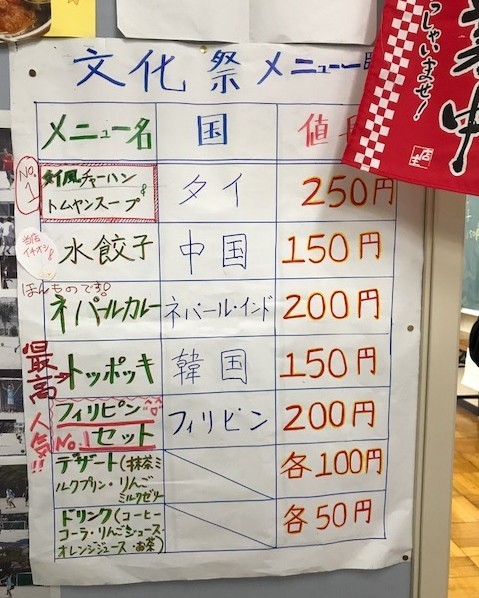 文化祭 メニュー
メニュー名 国 値
No.1
タイ風チャーハン&
トムヤンスープ
タイ 250円
当店
イチオシ
水餃子 中国 150円
ほんものです!
ネパールカレー ネパール・インド 200円
最高
トッポッキ 韓国 150円
人気!!
フィリピン
No.1セット
フィリピン 200円
デザート(抹茶ミ
ルクプリン・りんご
ミルクゼリー
各100円
ドリンク(コーヒー
コーラ・りんごジュース・
オレンジジュース・お茶)
各50円
中
っしゃいませ!